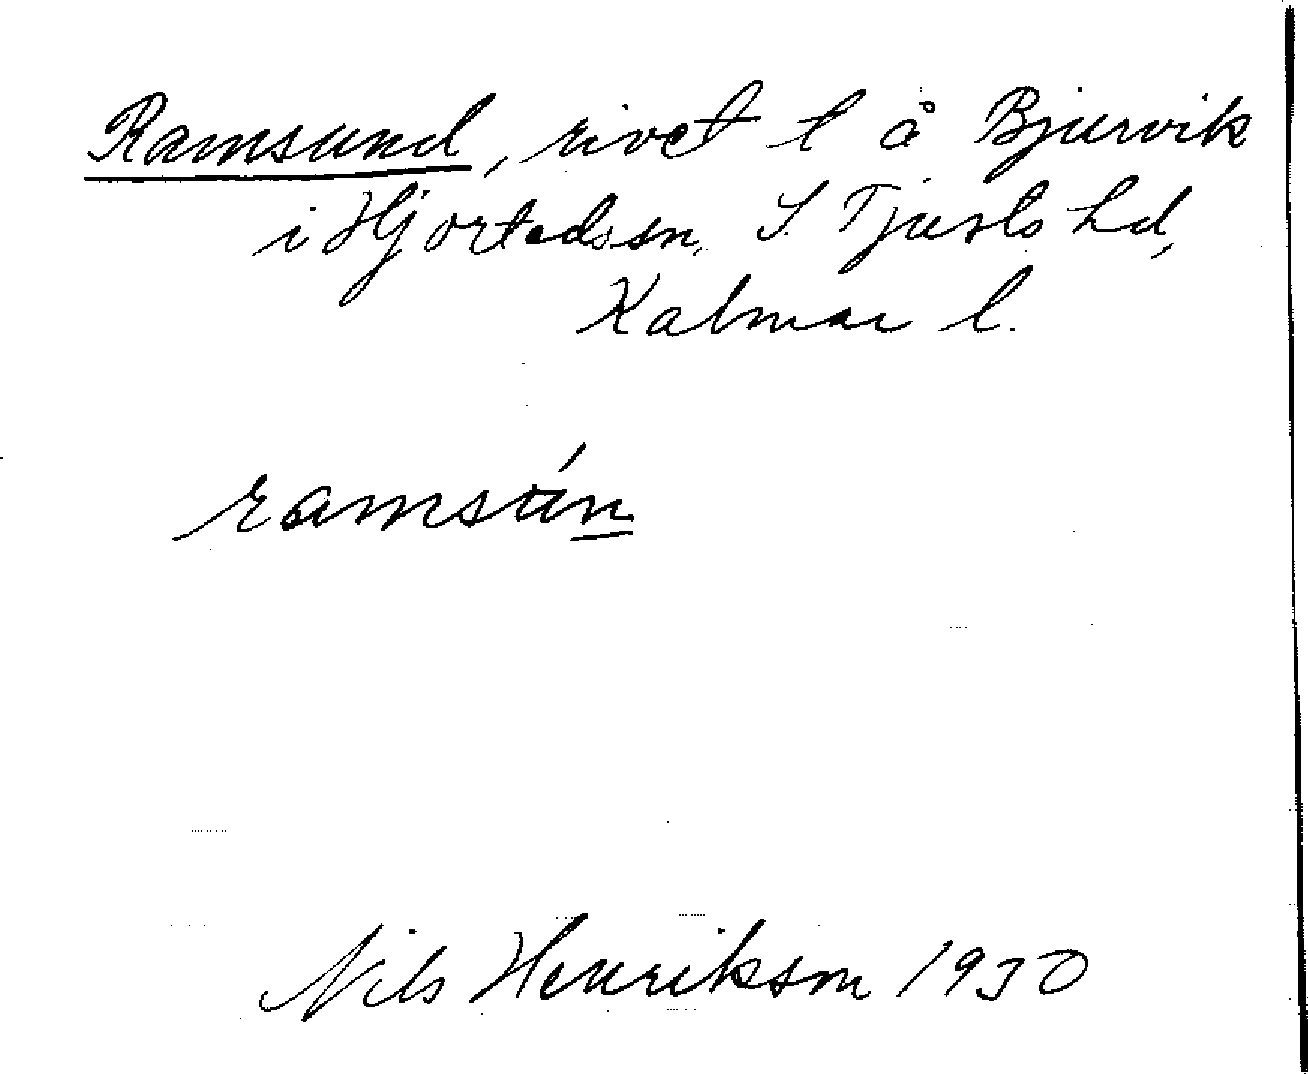 Ramsund, rivet t å Bjurvik
i Hjorteds sn, S. Tjusts hd,
Kalmar l.
ramsún
Nils Henrikson 1930